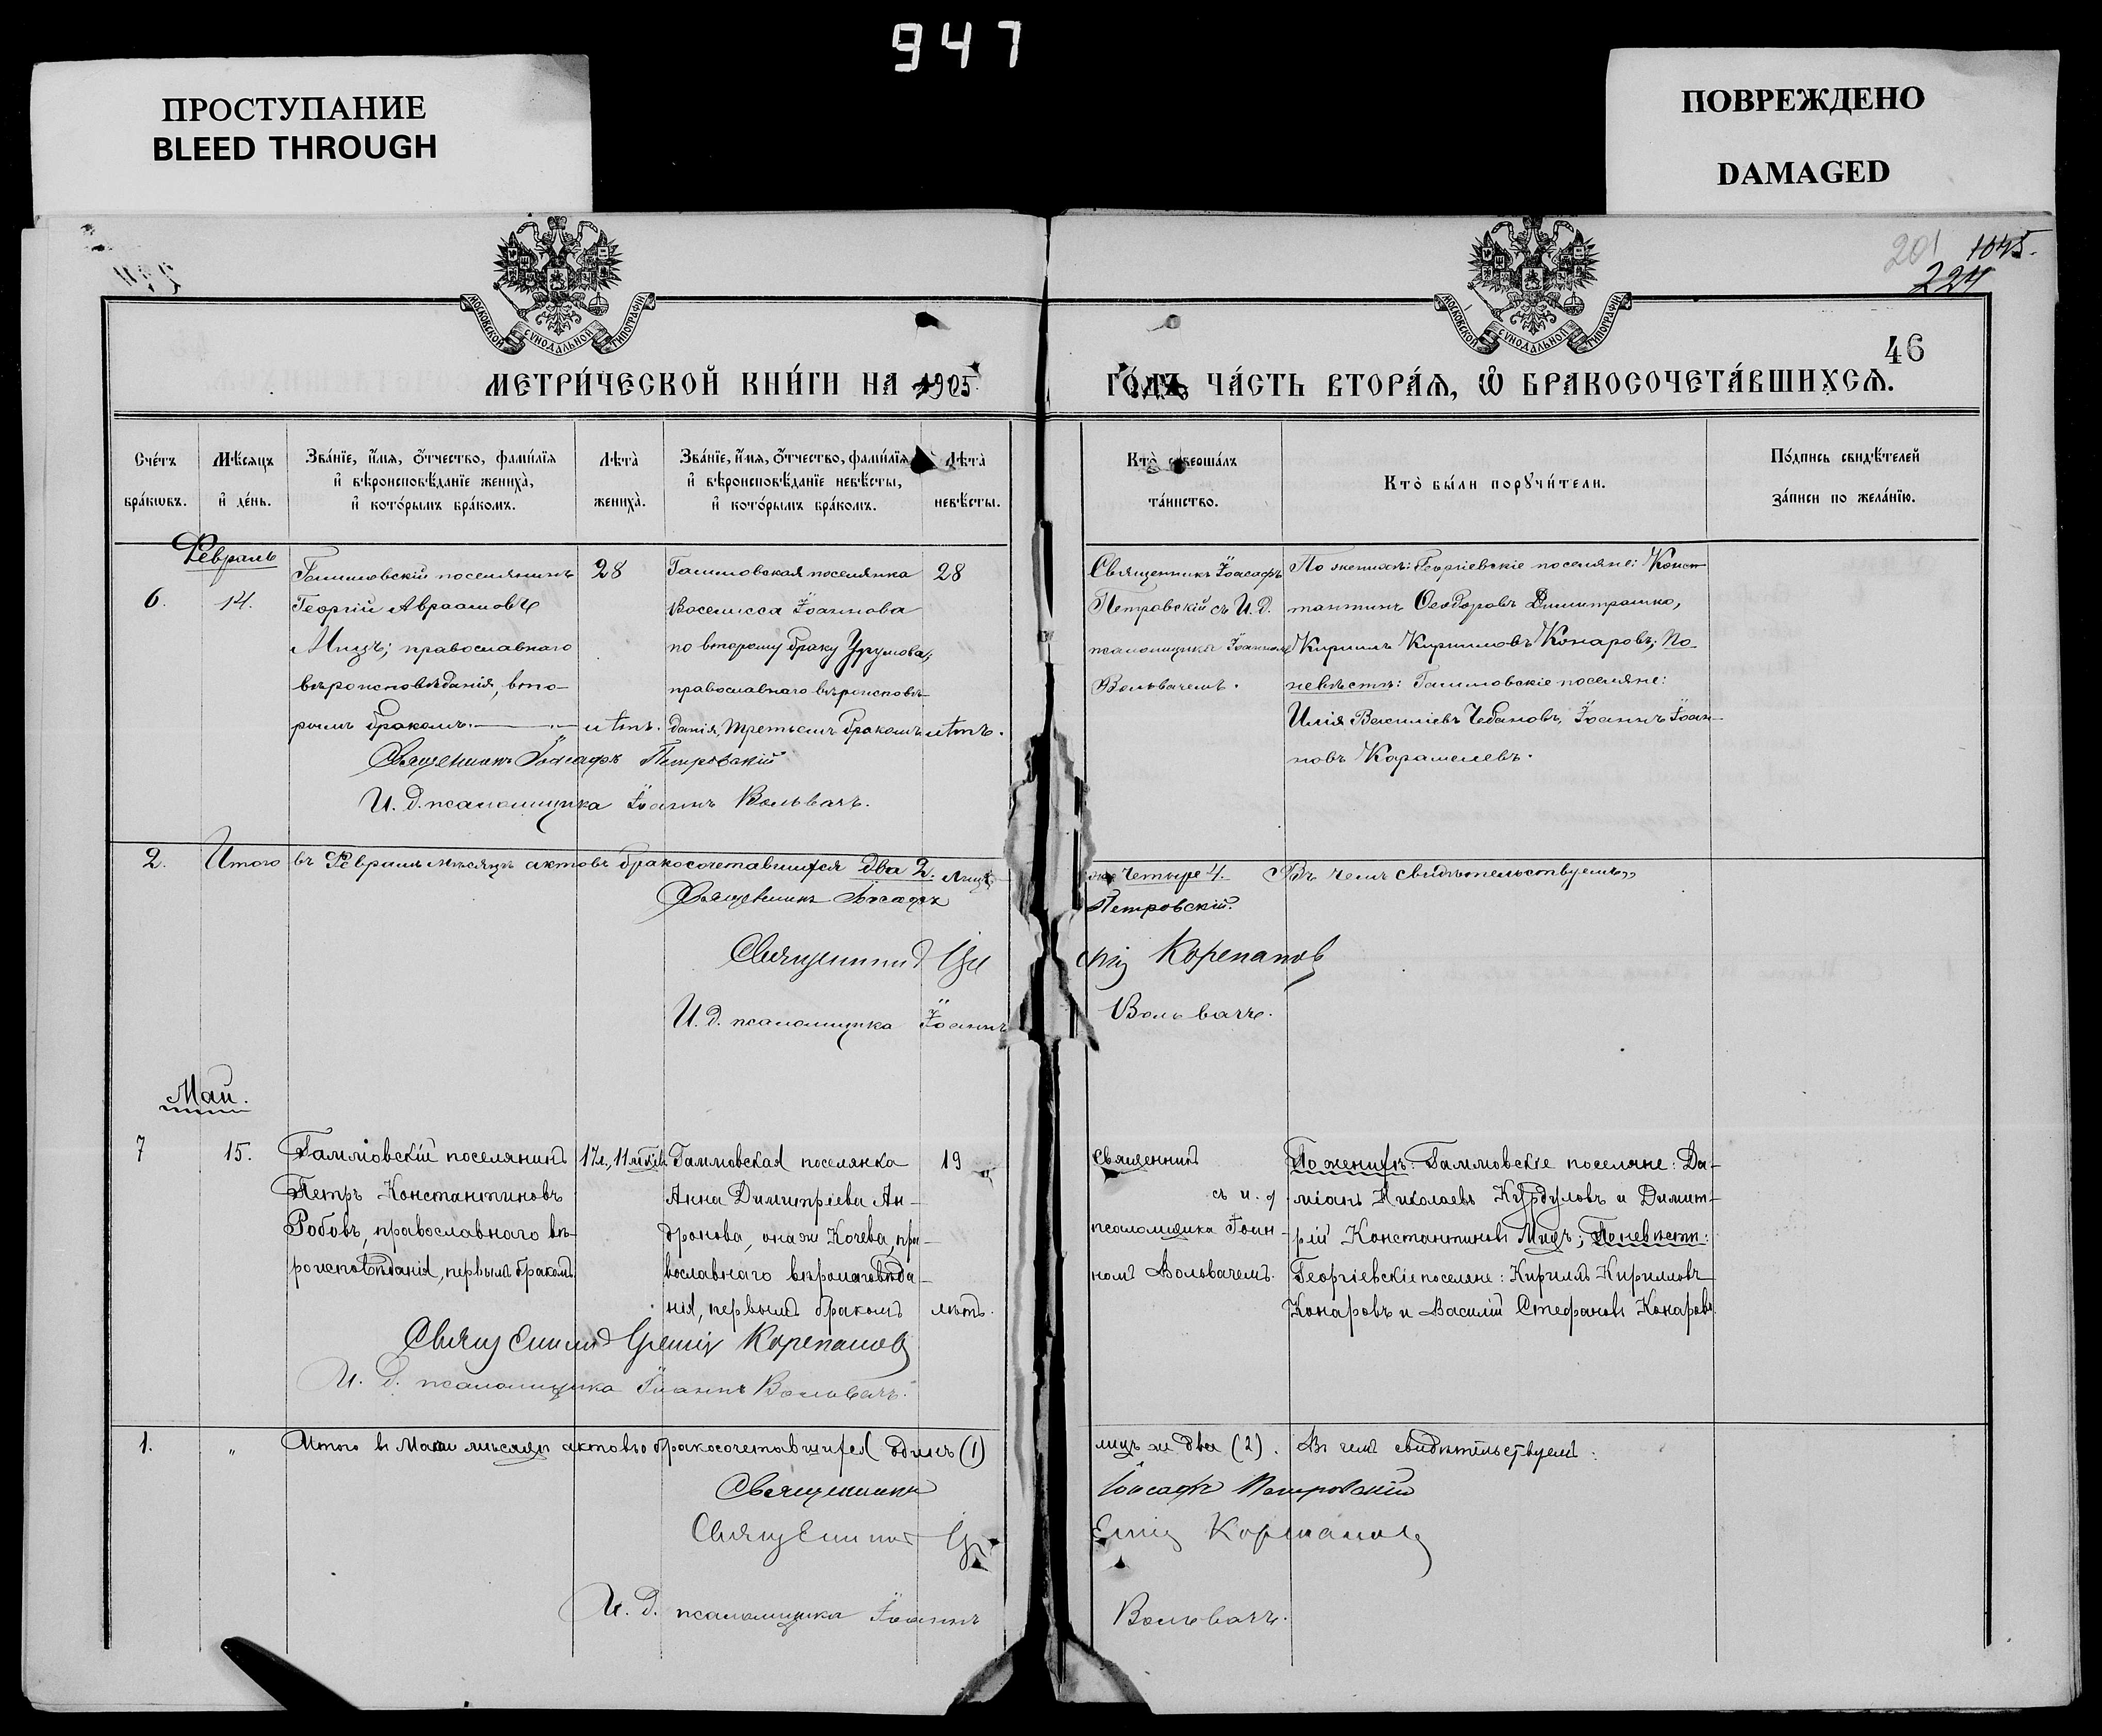 947
ПРОСТУПАНИЕ
BLEED THROUGH
ПОВРЕЖДЕНО
DAMAGED
201 1045.
224
46
МОСКОВСКОЙ СѴНОДАЛЬНОЙ ТИПОГРАФІИ
МОСКОВСКОЙ СѴНОДАЛЬНОЙ ТИПОГРАФІИ
МЕТРИ́ЧЕСКОЙ КНИ́ГИ НА 1905 ГО́ДЪ ЧА́СТЬ ВТОРА́Ѧ, Ѽ БРАКОСОЧЕТА́ВШИХСѦ.
Сче́тъ бра́кѡвъ.
Мѣ́сѧцъ и҆ де́нь.
Зва́нїе, и҆́мя, ѻ҆́тчество, фами́лїя и҆ вѣроисповѣ́данїе жениха̀, и҆ кото́рымъ бра́комъ.
Лѣта̀ жениха̀.
Зва́нїе, и҆́мя, ѻ҆́тчество, фами́лїя и҆ вѣроисповѣ́данїе невѣ́сты, и҆ кото́рымъ бра́комъ.
Лѣта̀ невѣ́сты.
Кто̀ соверша́лъ та́инство.
Кто̀ бы́ли порꙋчи́тели.
По́дпись свидѣ́телей за́писи по жела́нїю.
Февраль
6.
14.
Гаммовскій поселянинъ
Георгій Авраамовъ
Мицъ; православнаго
вѣроисповѣданія, вто-
рымъ бракомъ.
28
лѣтъ.
Гаммовская поселянка
Васелисса Іоаннова
по второму браку Урумова,
православнаго вѣроисповѣ-
данія, третьимъ бракомъ
28
лѣтъ.
Священникъ Іоасафъ
Петровскій съ И. д.
псаломщика Іоанномъ
Вольвачемъ.
По женихѣ: Георгіевскіе поселяне: Конст-
тантинъ Ѳеодоровъ Димитрашко,
Кириллъ Кирилловъ Конаровъ; По
невѣстѣ: Гаммовскіе поселяне:
Илія Василіевъ Чебановъ, Іоаннъ Іоан-
новъ Карамелевъ.
Священникъ Іоасафъ Петровскій
И. д. псаломщика Іоаннъ Вольвачъ.
2. Итого въ Февралѣ мѣсяцѣ актовъ бракосочетавшихся два 2. лицъ же четыре 4. Въ чемъ свидѣтельствуемъ
Священникъ Іоасафъ Петровскій.
Священникъ Корепанов
И. д. псаломщика Іоаннъ Вольвачъ.
Май.
7
15.
Гаммовскій поселянинъ
Петръ Константиновъ
Робовъ, православнаго вѣ-
роисповѣданія, первымъ бракомъ
17 л., 11 мѣсяцев
Гаммовская поселянка
Анна Димитріева Ан-
дронова, она же Кочева, пра-
вославнаго вѣроисповѣда-
нія, первымъ бракомъ
19
лѣтъ.
Священникъ
съ и. д
псаломщика Іоан-
номъ Вольвачемъ.
По женихѣ: Гаммовскіе поселяне: Да-
міанъ Николаевъ Курдуловъ и Димит-
рій Константиновъ Мицъ; По невѣстѣ:
Георгіевскіе поселяне: Кириллъ Кирилловъ
Конаровъ и Василій Стефановъ Конаровъ.
Священникъ Корепанов
И. д. псаломщика Іоаннъ Вольвачъ.
1. „ Итого въ Маѣ мѣсяцѣ актовъ о бракосочетавшихся одинъ (1) лицъ же два (2). Въ чемъ свидѣтельствуемъ:
Священникъ Іоасафъ Петровскій
Священникъ Корепанов
И. д. псаломщика Іоаннъ Вольвачъ.